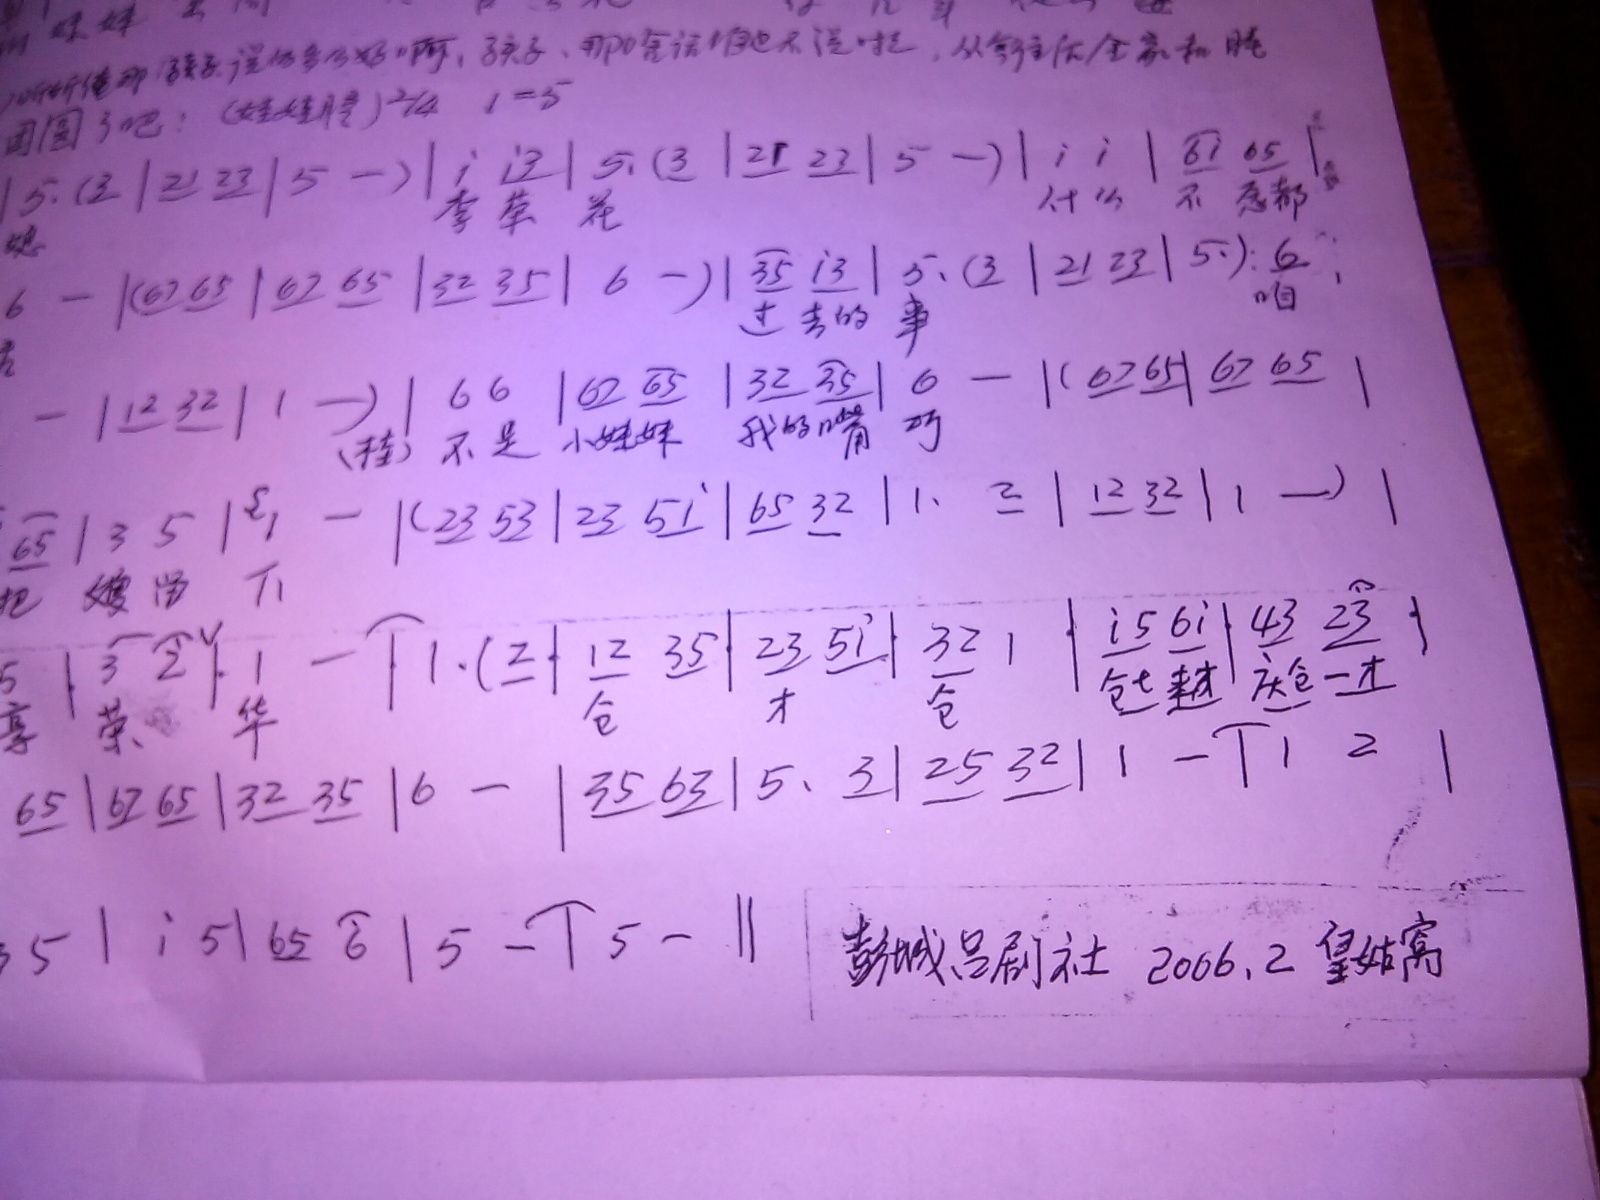 妹妹
孩子说的多么好啊，孩子、那啥话咱也不说啦，从今往后全家和睦
团圆了吧：(娃娃腔) 2/4 1=5
|5.(3|21 23|5 —)|i i3|5.(3|21 23|5 —)|i i|6i 65|
李荣花 什么 不愿都
6 —|(67 65|67 65|32 35|6 —)|35 i3|5.(3|21 23|5.):6
过去的事 咱
—|12 32|1 —)|66|67 65|32 35|6 —|(67 65|67 65|
(桂) 不是 小妹妹 我的嘴巧
65|3 5|1 —|(23 53|23 5i|65 32|1. 2|12 32|1 —)|
把 嫂留下
5|3 2|1 —|1.(2|12 35|23 5i|32 1|i5 6i|43 23|
享荣华 仓 才 仓 仓七来才 庆仓一才
65|67 65|32 35|6 —|35 63|5. 3|25 32|1 —|1 2|
35|i 5|65 6|5 —|5 —||
彭城吕剧社 2006.2 皇姑窝